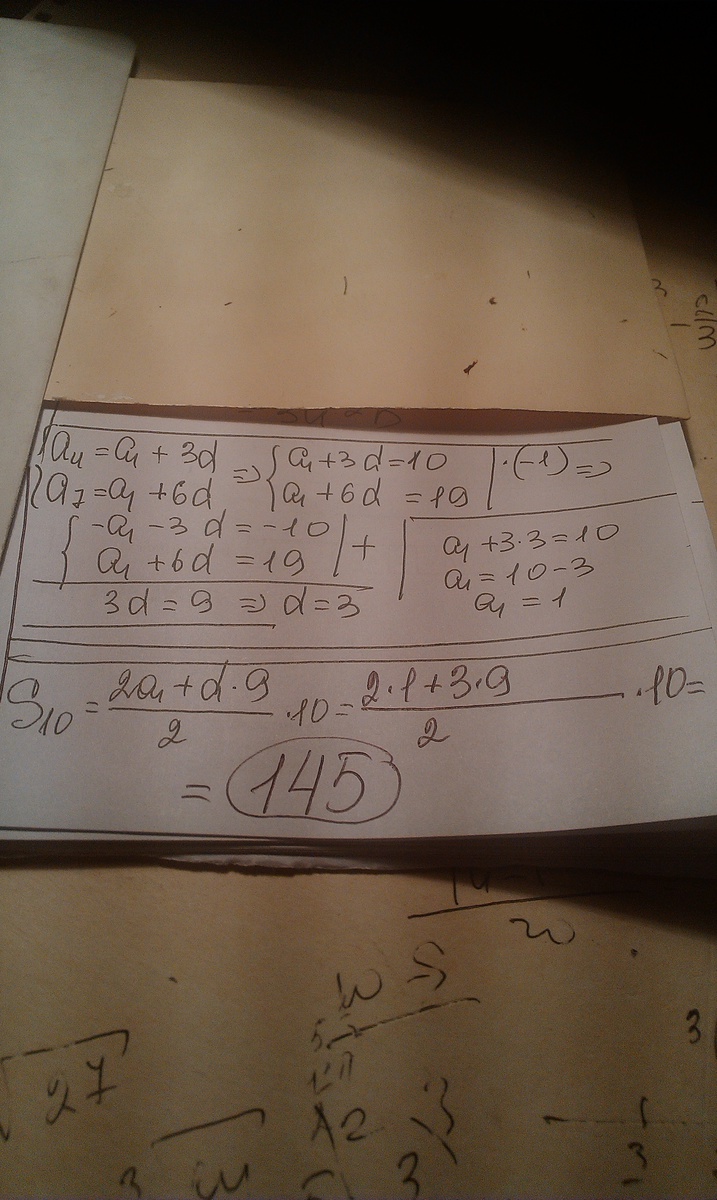 {a₄ = a₁ + 3d => {a₁ + 3d = 10 | ·(-1) =>
{a₇ = a₁ + 6d {a₁ + 6d = 19
{-a₁ - 3d = -10 | +
a₁ + 6d = 19
3d = 9 => d = 3
a₁ + 3·3 = 10
a₁ = 10 - 3
a₁ = 1
S₁₀ = (2a₁ + d·9)/2 ·10 = (2·1 + 3·9)/2 ·10 =
= 145
√27
3
3